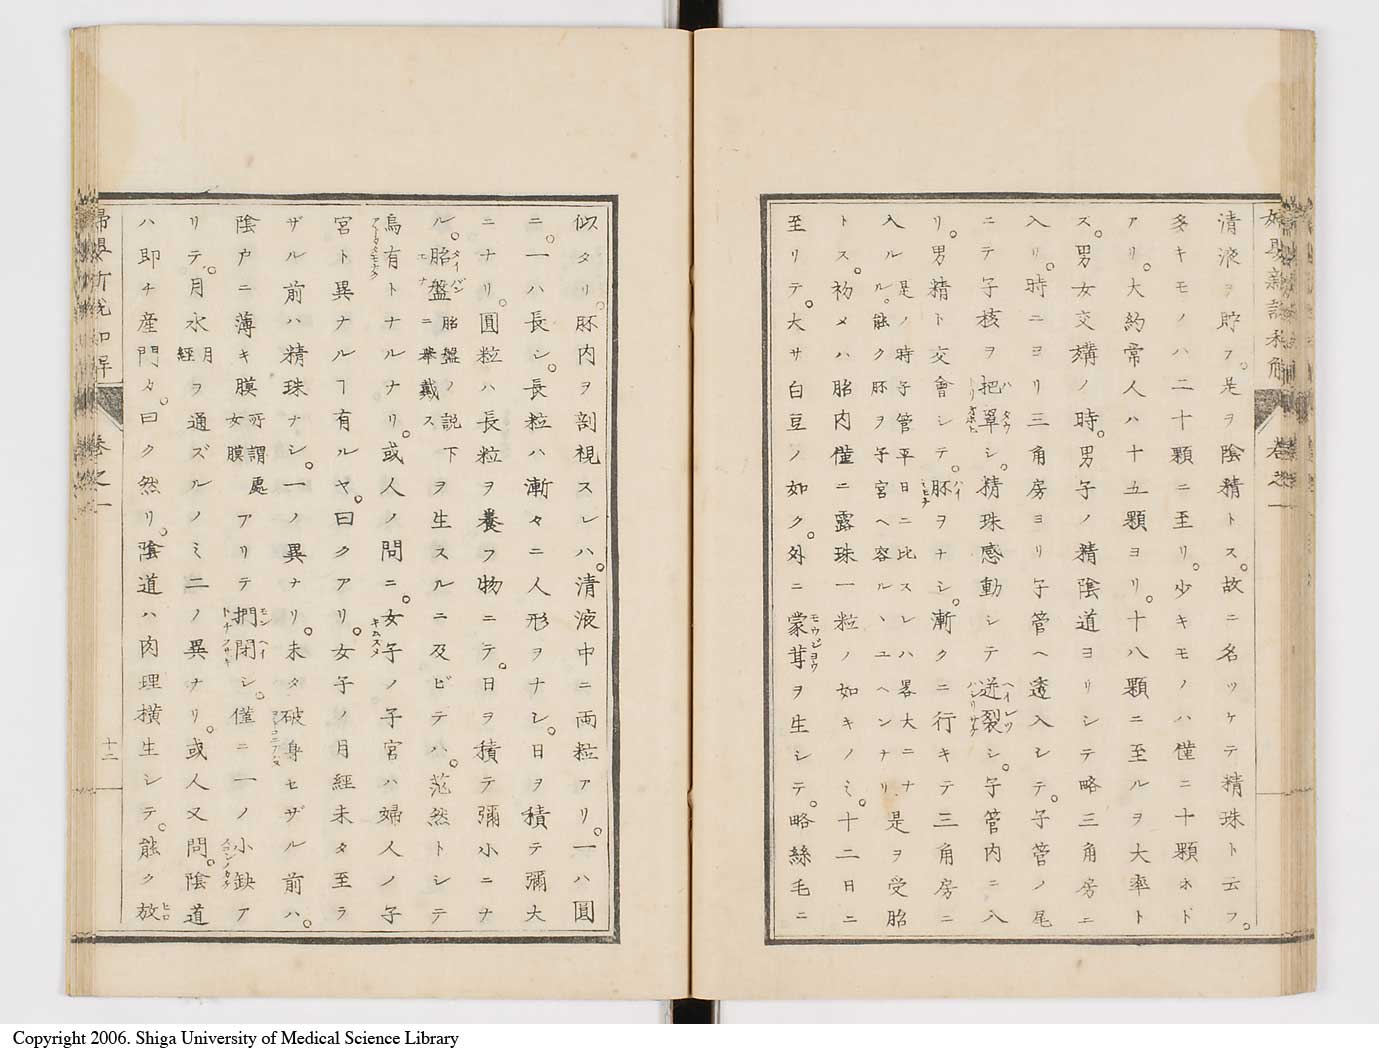 清液ヲ貯フ。是ヲ陰精トス。故ニ名ツケテ精珠ト云フ。
多キモノハ二十顆ニ至リ。少キモノハ僅ニ十顆ホド
アリ。大約常人ハ十五顆ヨリ。十八顆ニ至ルヲ大率ト
ズ。男女交媾ノ時。男子ノ精陰道ヨリシテ略三角房ニ
入リ。時ニヨリ三角房ヨリ子管ヘ透入シテ。子管ノ尾
ニテ子核ヲ把罩シ。精珠感動シテ迸裂シ。子管内ニ入
リ。男精ト交會シテ。胚ヲナシ。漸クニ行キテ三角房ニ
入ル是ノ時子管平日ニ比スレハ畧大ニナル。能ク胚ヲ子宮ヘ容ルヽユヘンナリ是ヲ受胎
トス。初メハ胎内僅ニ露珠一粒ノ如キノミ。十二日ニ
至リテ。大サ白豆ノ如ク。外ニ蒙茸ヲ生シテ。略絲毛ニ
似タリ。胚内ヲ剖視スレハ。清液中ニ両粒アリ。一ハ圓
ニ。一ハ長シ。長粒ハ漸々ニ人形ヲナシ。日ヲ積テ彌大
ニナリ。圓粒ハ長粒ヲ養フ物ニテ。日ヲ積テ彌小ニナ
ル。胎盤胎盤ノ説下ニ舉戴スヲ生スルニ及ビテハ。茫然トシテ
烏有トナルナリ。或人ノ問ニ。女子ノ子宮ハ婦人ノ子
宮ト異ナルヿ有ルヤ。曰クアリ。女子ノ月經未タ至ラ
ザル前ハ精珠ナシ。一ノ異ナリ。未タ破身セザル前ハ。
陰戸ニ薄キ膜所謂處女膜アリテ捫閉シ。僅ニ一ノ小缺ア
リテ。月水月經ヲ通ズルノミ二ノ異ナリ。或人又問。陰道
ハ即チ産門カ。曰ク然リ。陰道ハ肉理横生シテ。能ク放
卷之一
十二
Copyright 2006. Shiga University of Medical Science Library